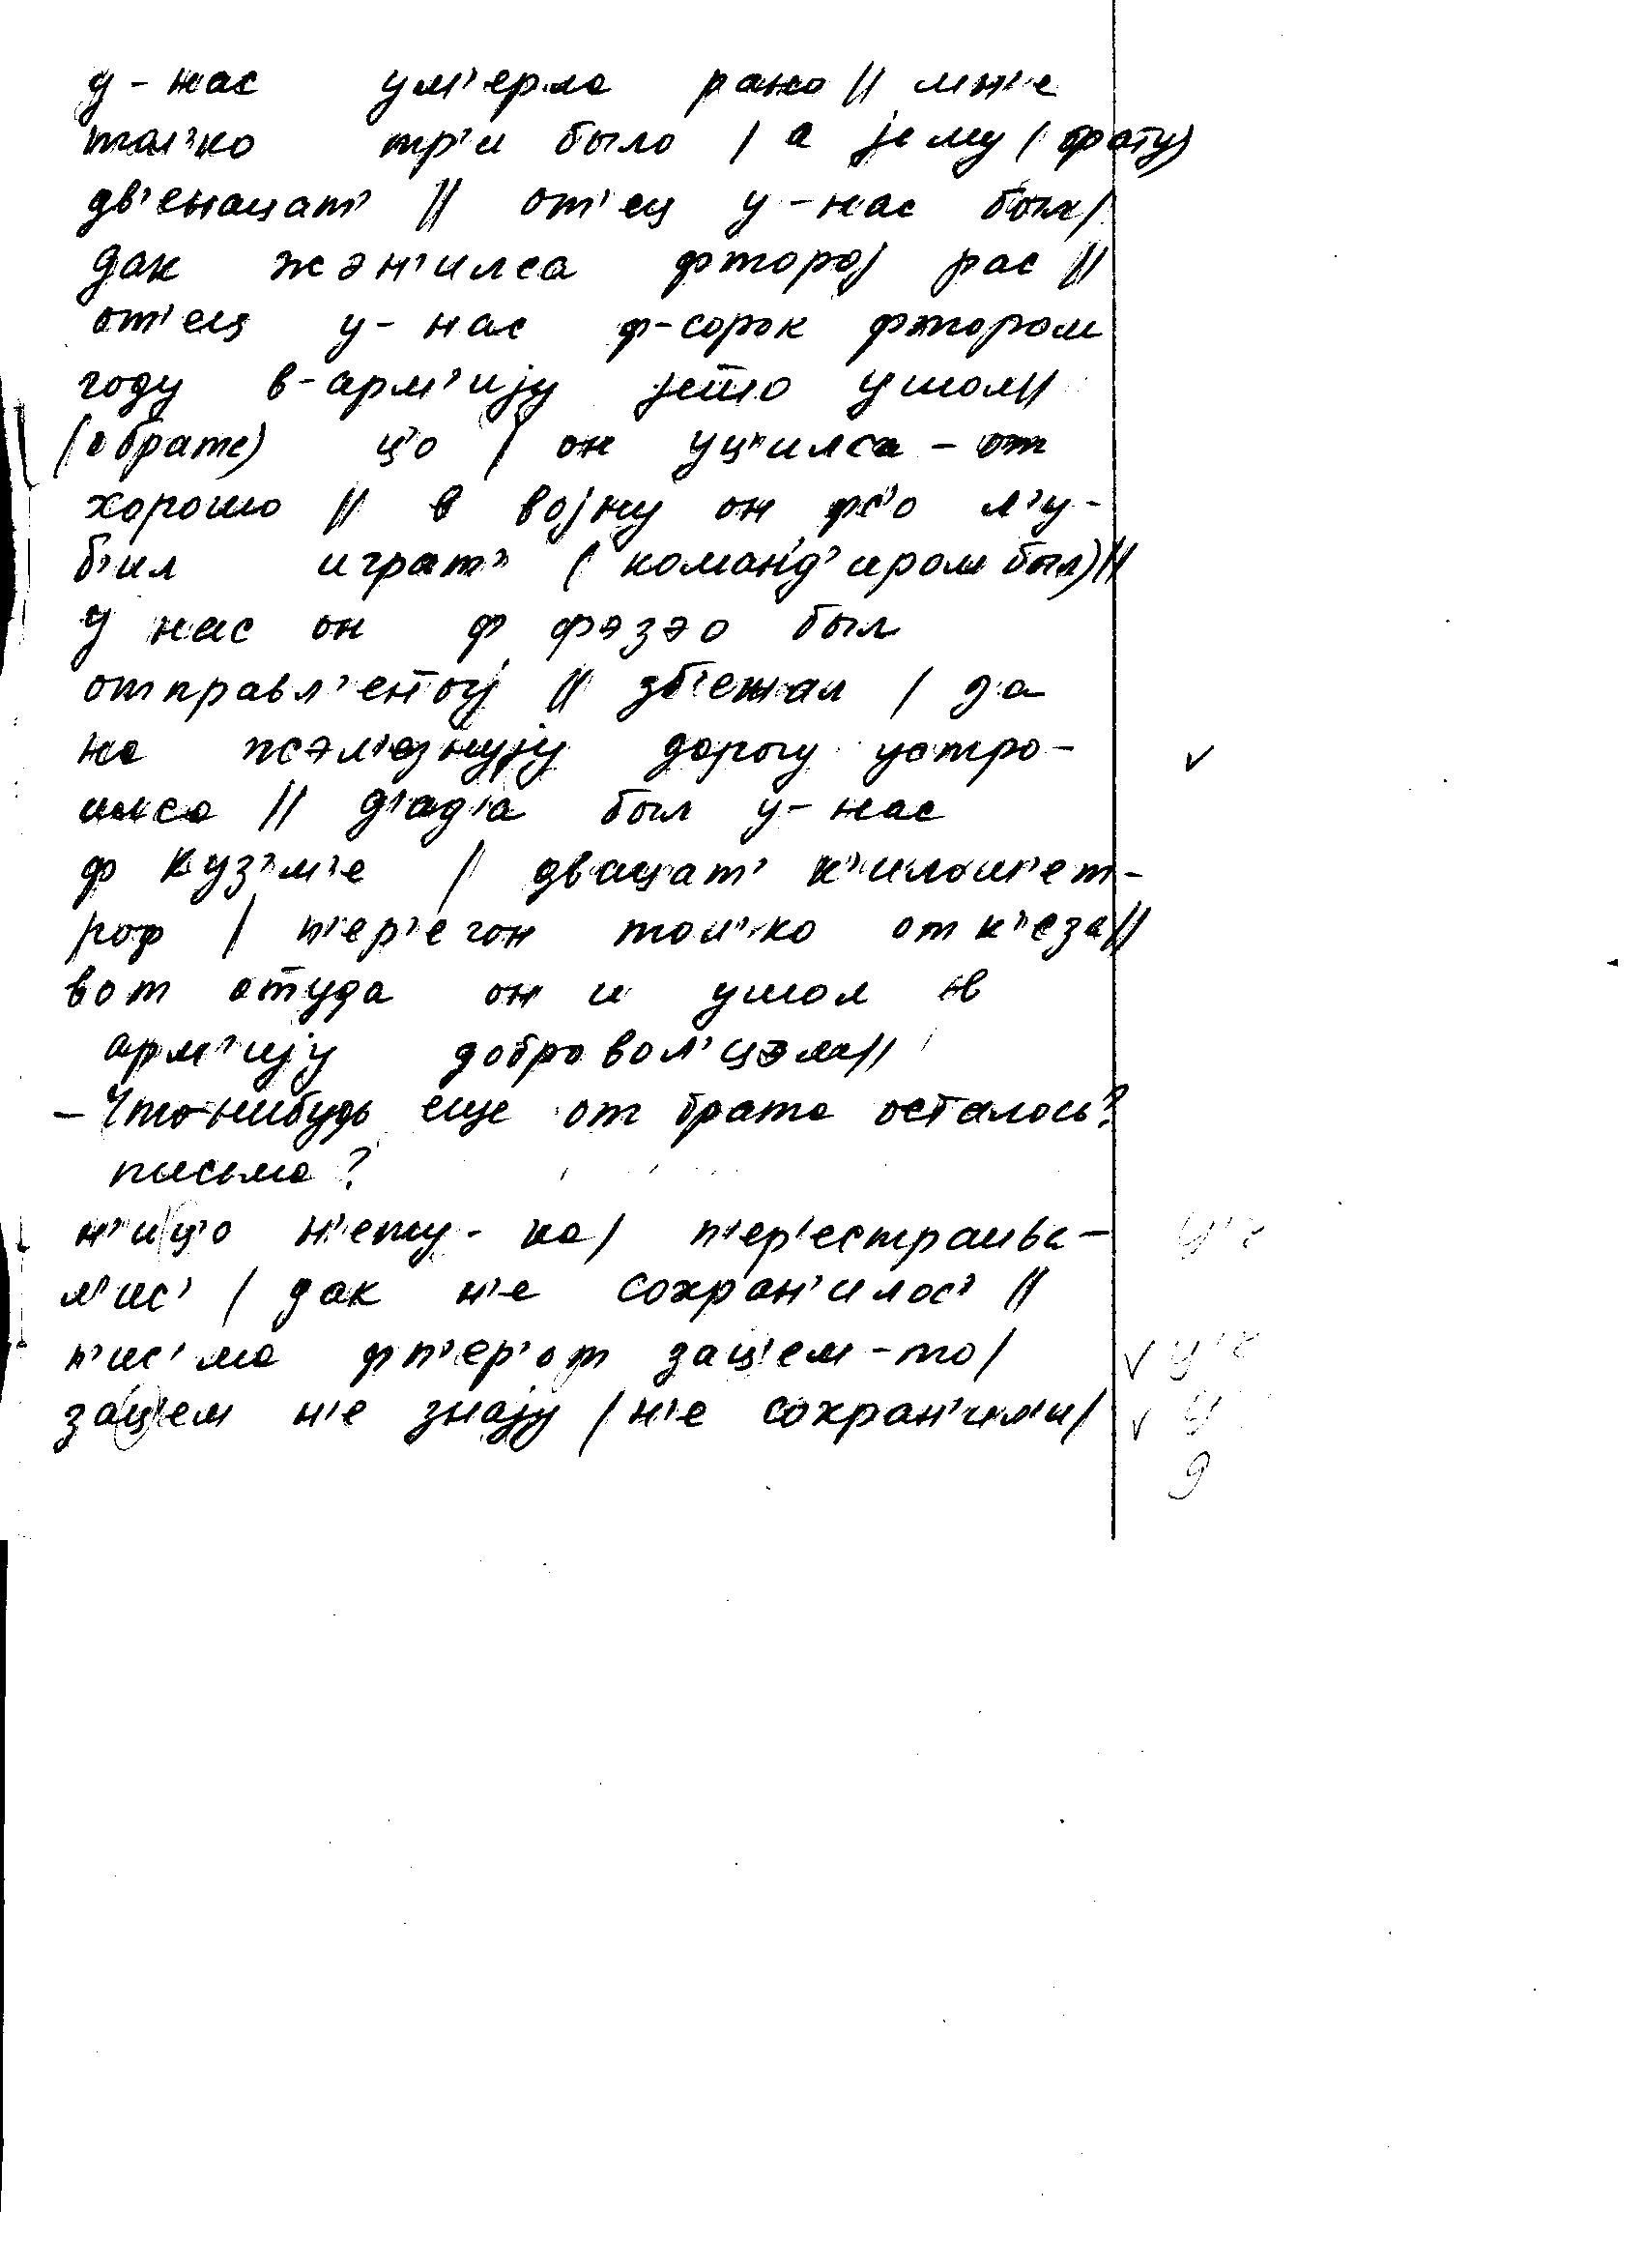 у-нас ум'ерла рано || мн'е
тол'ко тр'и было | а jему (брату)
дв'енацат' || от'ец у-нас был |
дак жэн'илса фтороj рас ||
от'ец у-нас ф-сорок фтором
году в-арм'иjу ушол ||
(о брате) ц'о | он уц'илса-от
хорошо || в воjну он фс'о л'у-
б'ил играт' (команд'иром был) ||
у нас он ф фэзэо был
отправл'еноj || зб'ежал | да
на жэл'езнуjу дорогу устро-
илса || д'ад'а был у-нас
ф куз'м'е | двацат' к'илом'ет-
роф | п'ер'егон тол'ко от к'еза ||
вот отуда он и ушол в
арм'иjу добровол'цэм ||
- Что-нибудь еще от брата осталось?
письма?
н'иц'о н'ету-ка | п'ер'естраива-
л'ис' | дак н'е сохран'илос' ||
п'ис'ма фп'ер'от зац'ем-то |
зац'ем н'е знаjу | н'е сохран'ил'и |